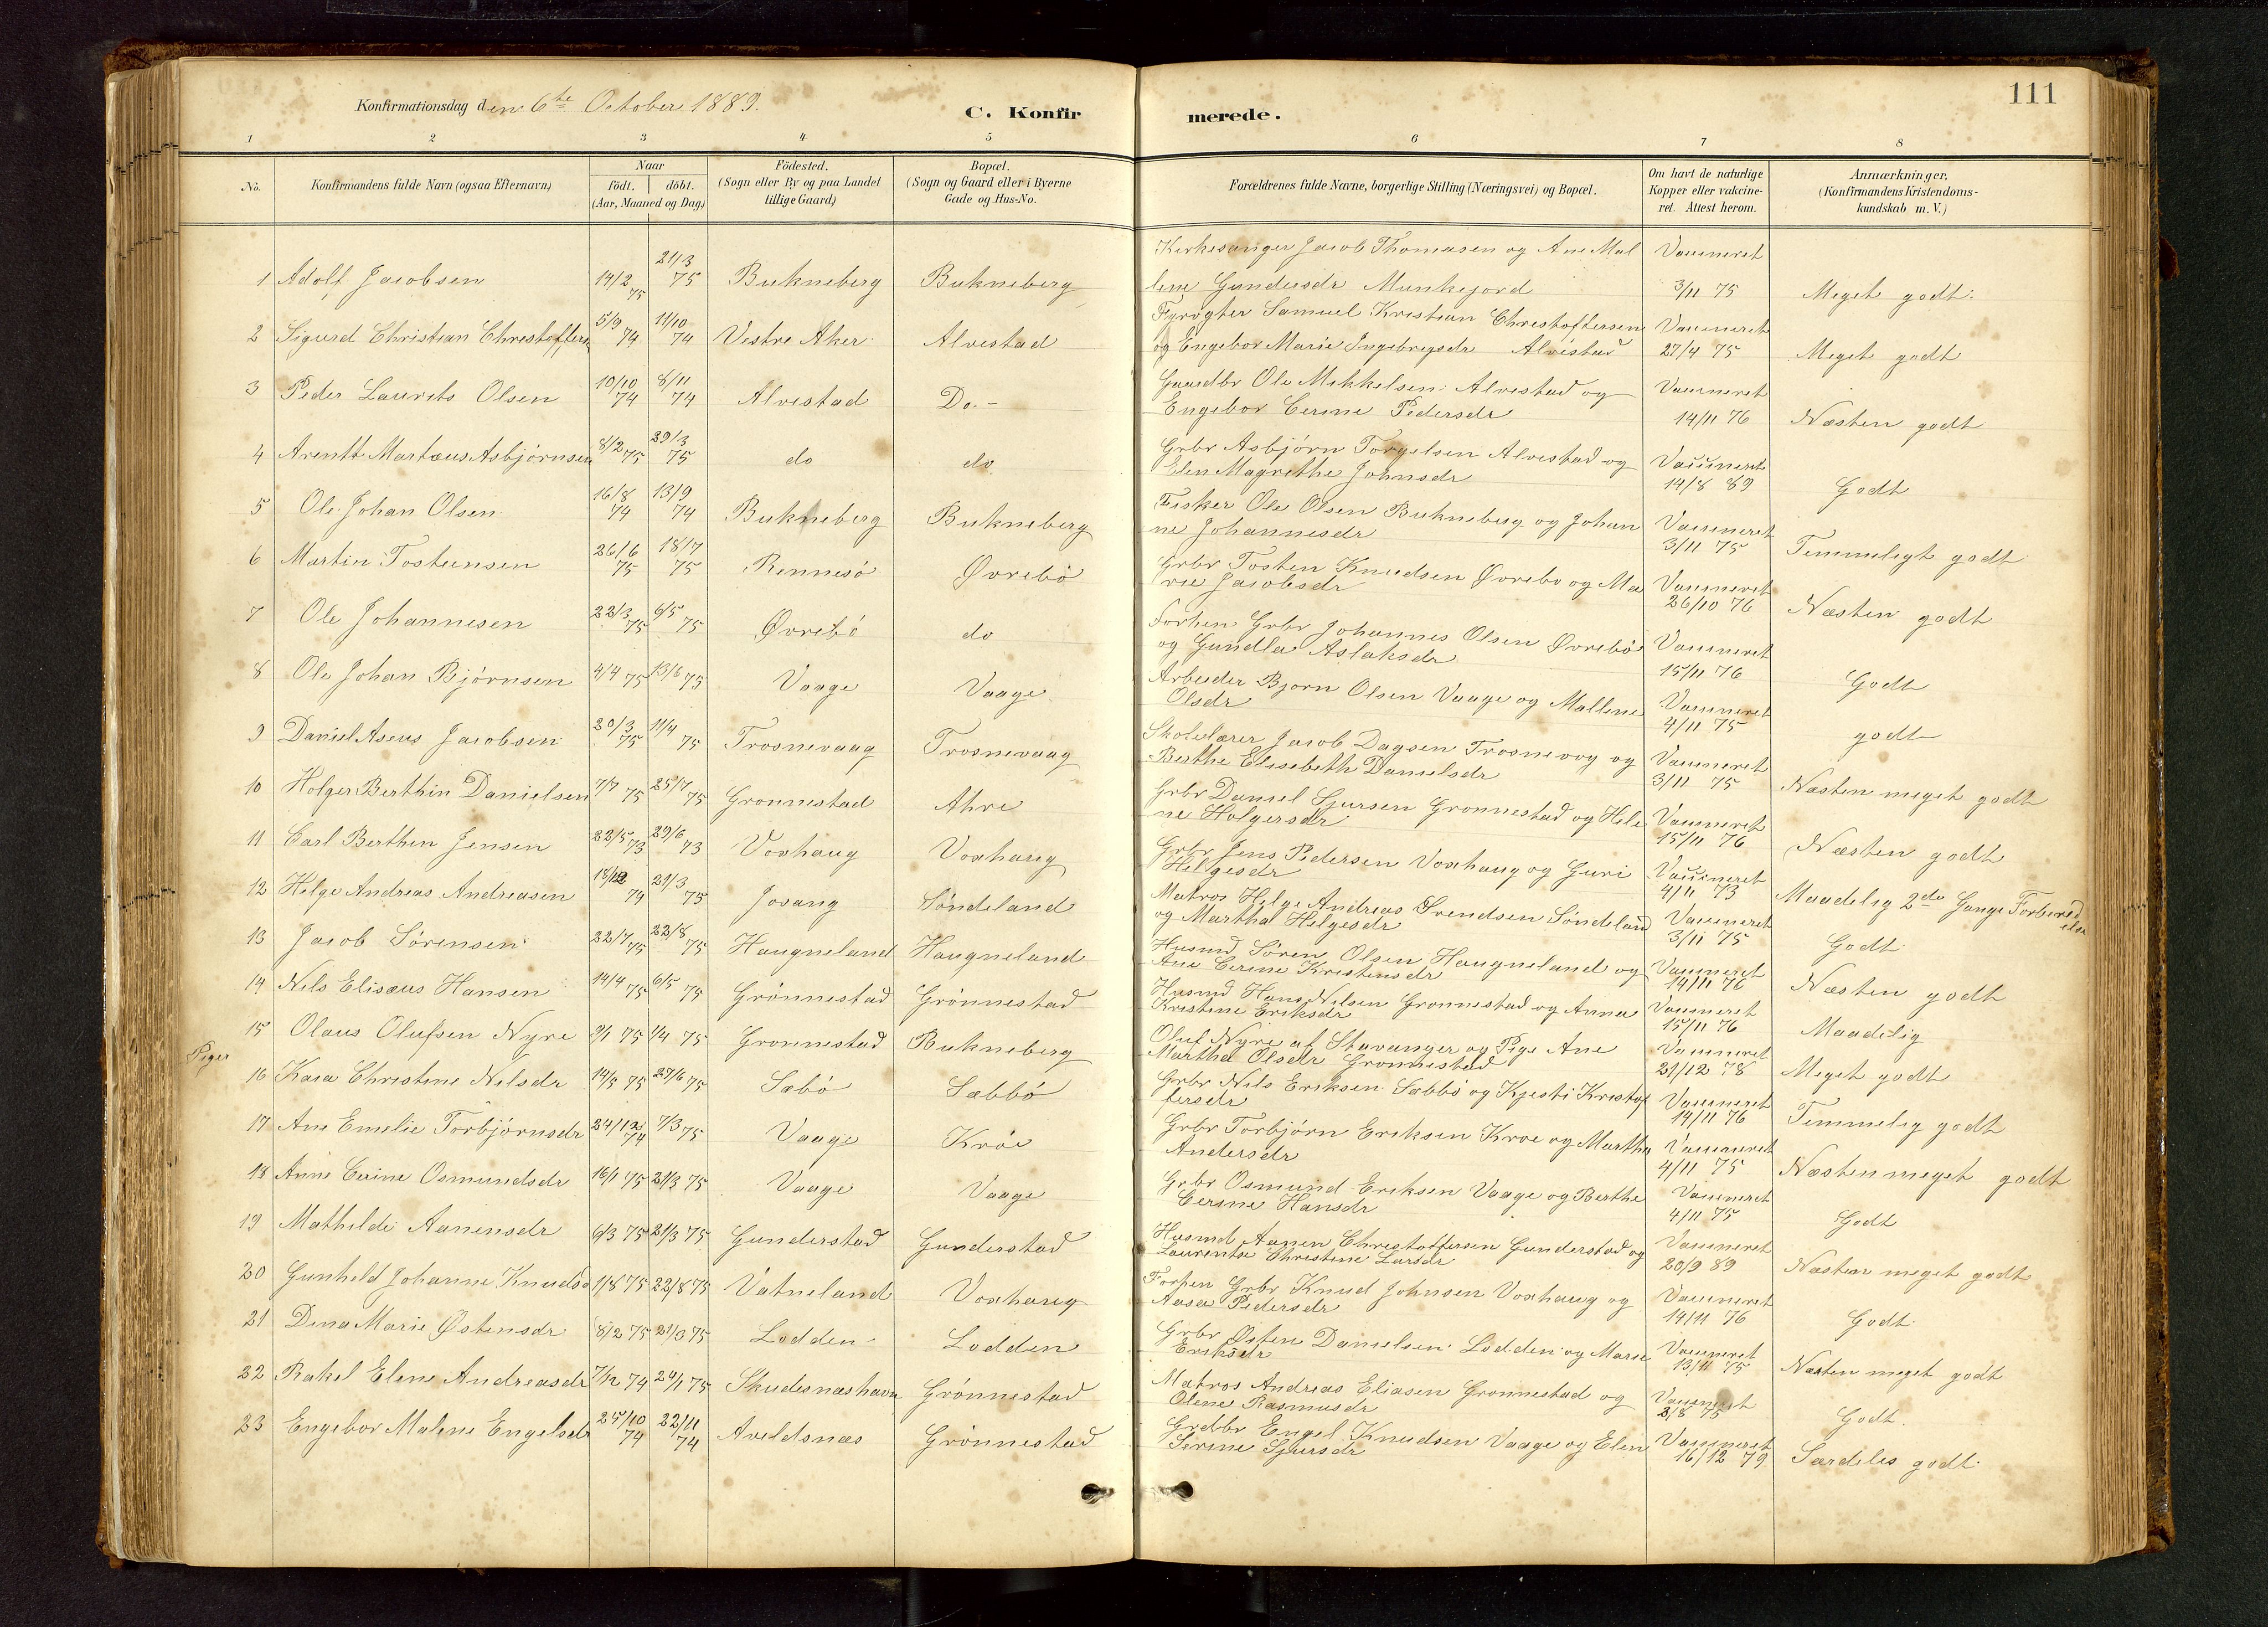 Konfirmationsdag den 6te October 1889.
C. Konfirmerede.
111
1 2 3 4 5 6 7 8
No.
Konfirmandens fulde Navn (ogsaa Efternavn)
Naar
födt. döbt.
(Aar, Maaned og Dag)
Födested.
(Sogn eller By og paa Landet
tillige Gaard)
Bopæl.
(Sogn og Gaard eller i Byerne
Gade og Hus-No.
Forældrenes fulde Navne, borgerlige Stilling (Næringsvei) og Bopæl.
Om havt de naturlige
Kopper eller vakcine-
ret. Attest herom.
Anmærkninger.
(Konfirmandens Kristendoms-
kundskab m. V.)
1 Adolf Jacobsen 14/2 75 21/3 75 Bukneberg Bukneberg Kirkesanger Jacob Thomasen og Ane Mal
lene Gundersdr Munkejord Vaccineret 3/11 75 Meget godt.
2 Sigurd Christian Christoffersen 5/9 74 11/10 74 Vestre Aker Alvestad Fyrvogter Samuel Kristian Christoffersen
og Engebor Marie Ingebregsdr Alvistad Vaccineret 27/4 75 Meget godt
3 Peder Laurits Olsen 10/10 74 8/11 74 Alvestad Do.- Gaardbr Ole Mikkelsen Alvestad og
Engebor Cerine Pedersdr Vaccineret 14/11 76 Næsten godt
4 Arentt Martæus Asbjørnsen 8/2 75 29/3 75 do do Grbr Asbjørn Torgelsen Alvestad og
Elen Magrethe Johnsdr Vaccineret 14/8 89 Godt
5 Ole Johan Olsen 16/8 74 13/9 74 Bukneberg Bukneberg Fisker Ole Olsen Bukneberg og Johan
ne Johannesdr Vaccineret 3/11 75 Temmeligt godt
6 Martin Tosteensen 26/6 75 18/7 75 Rennesö Øvrebö Grbr Tosten Knudsen Øvrebö og Ma
rie Jacobsdr Vaccineret 26/10 76 Næsten godt
7 Ole Johannesen 22/3 75 6/5 75 Øvrebö do Forhen Grbr Johannes Olsen Øvrebö
og Gundla Aslaksdr Vaccineret 15/11 76 Godt
8 Ole Johan Bjørnsen 4/4 75 13/6 75 Vaage Vaage Arbeider Bjorn Olsen Vaage og Mallene
Olsdr Vaccineret 4/11 75 godt
9 Daniel Aseus Jacobsen 20/3 75 11/4 75 Trosnevaag Trosnevaag Skolelærer Jacob Dagsen Trosnevog og
Berthe Elisebeth Danielsdr Vaccineret 3/11 75 Næsten meget godt
10 Holger Berthin Danielsen 7/7 75 25/7 75 Gronnestad Ahre Grbr Daniel Sjursen Gronnestad og Hele
ne Holgersdr Vaccineret 15/11 76 Næsten godt
11 Carl Berthin Jensen 22/5 73 29/6 73 Voxhaug Voxhaug Grbr Jens Pedersen Voxhaug og Guri
Helgesdr Vaccineret 4/11 73 Maadelig 2de Gange Forbered
else
12 Helge Andreas Andreasen 18/12 74 21/3 75 Josang Söndeland Matros Helge Andreas Svendsen Söndeland
og Martha Helgesdr Vaccineret 3/11 75 Godt
13 Jacob Sörensen 22/7 75 22/8 75 Haugneland Haugneland Husmd Sören Olsen Haugneland og
Ane Cerine Kristensdr Vaccineret 14/11 76 Næsten godt
14 Nils Elisæus Hansen 14/4 75 6/5 75 Grönnestad Grönnestad Husmd Hans Nilsen Gronnestad og Anna
Kristine Eriksdr Vaccineret 15/11 76 Maadelig
15 Olaus Olufsen Nyre 2/1 75 1/4 75 Gronnestad Bukneberg Oluf Nyre af Stavanger og Pige Ane
Martha Olsdr Gronnestad Vaccineret 21/12 78 Meget godt
Piger
16 Kaia Christine Nilsdr 14/5 75 27/6 75 Sæbö Sæbbö Grbr Nils Eriksen Sæbbö og Kjesti Kristof
fersdr Vaccineret 14/11 76 Temmelig godt
17 Ane Emelie Torbjörnsdr 24/12 74 7/3 75 Vaage Kröe Grbr Torbjörn Eriksen Kroe og Martha
Andersdr Vaccineret 4/11 75 Næsten meget godt
18 Anne Cerine Osmundsdr 16/1 75 21/3 75 Vaage Vaage Grbr Osmund Eriksen Vaage og Berthe
Cerine Hansdr Vaccineret 4/11 75 Godt
19 Mathilde Aanensdr 6/3 75 21/3 75 Gunderstad Gunderstad Husmd Aanen Christoffersen Gunderstad og
Laurentse Christine Larsdr Vaccineret 20/9 89 Næsten meget godt
20 Gunheld Johanne Knudsd 1/8 75 22/8 75 Vatneland Voxhaug Forhen Grbr Knud Johnsen Voxhaug og
Aasa Pedersdr Vaccineret 14/11 76 Godt
21 Dina Marie Östensdr 8/2 75 21/3 75 Lodden Lodden Grbr Östen Danielsen Lodden og Marie
Eriksdr Vaccineret 13/11 75 Næsten meget godt
22 Rakel Elene Andreasdr 7/12 74 24/1 75 Skudesnæshavn Grönnestad Matros Andreas Eliasen Gronnestad og
Olene Rasmusdr Vaccineret 2/8 75 Godt.
23 Engebor Malene Engelsdr 25/10 74 22/11 74 Aveldsnæs Grönnestad Grdbr Engel Knudsen Vaage og Elen
Serine Sjursdr Vaccineret 16/12 79 Særdeles godt.